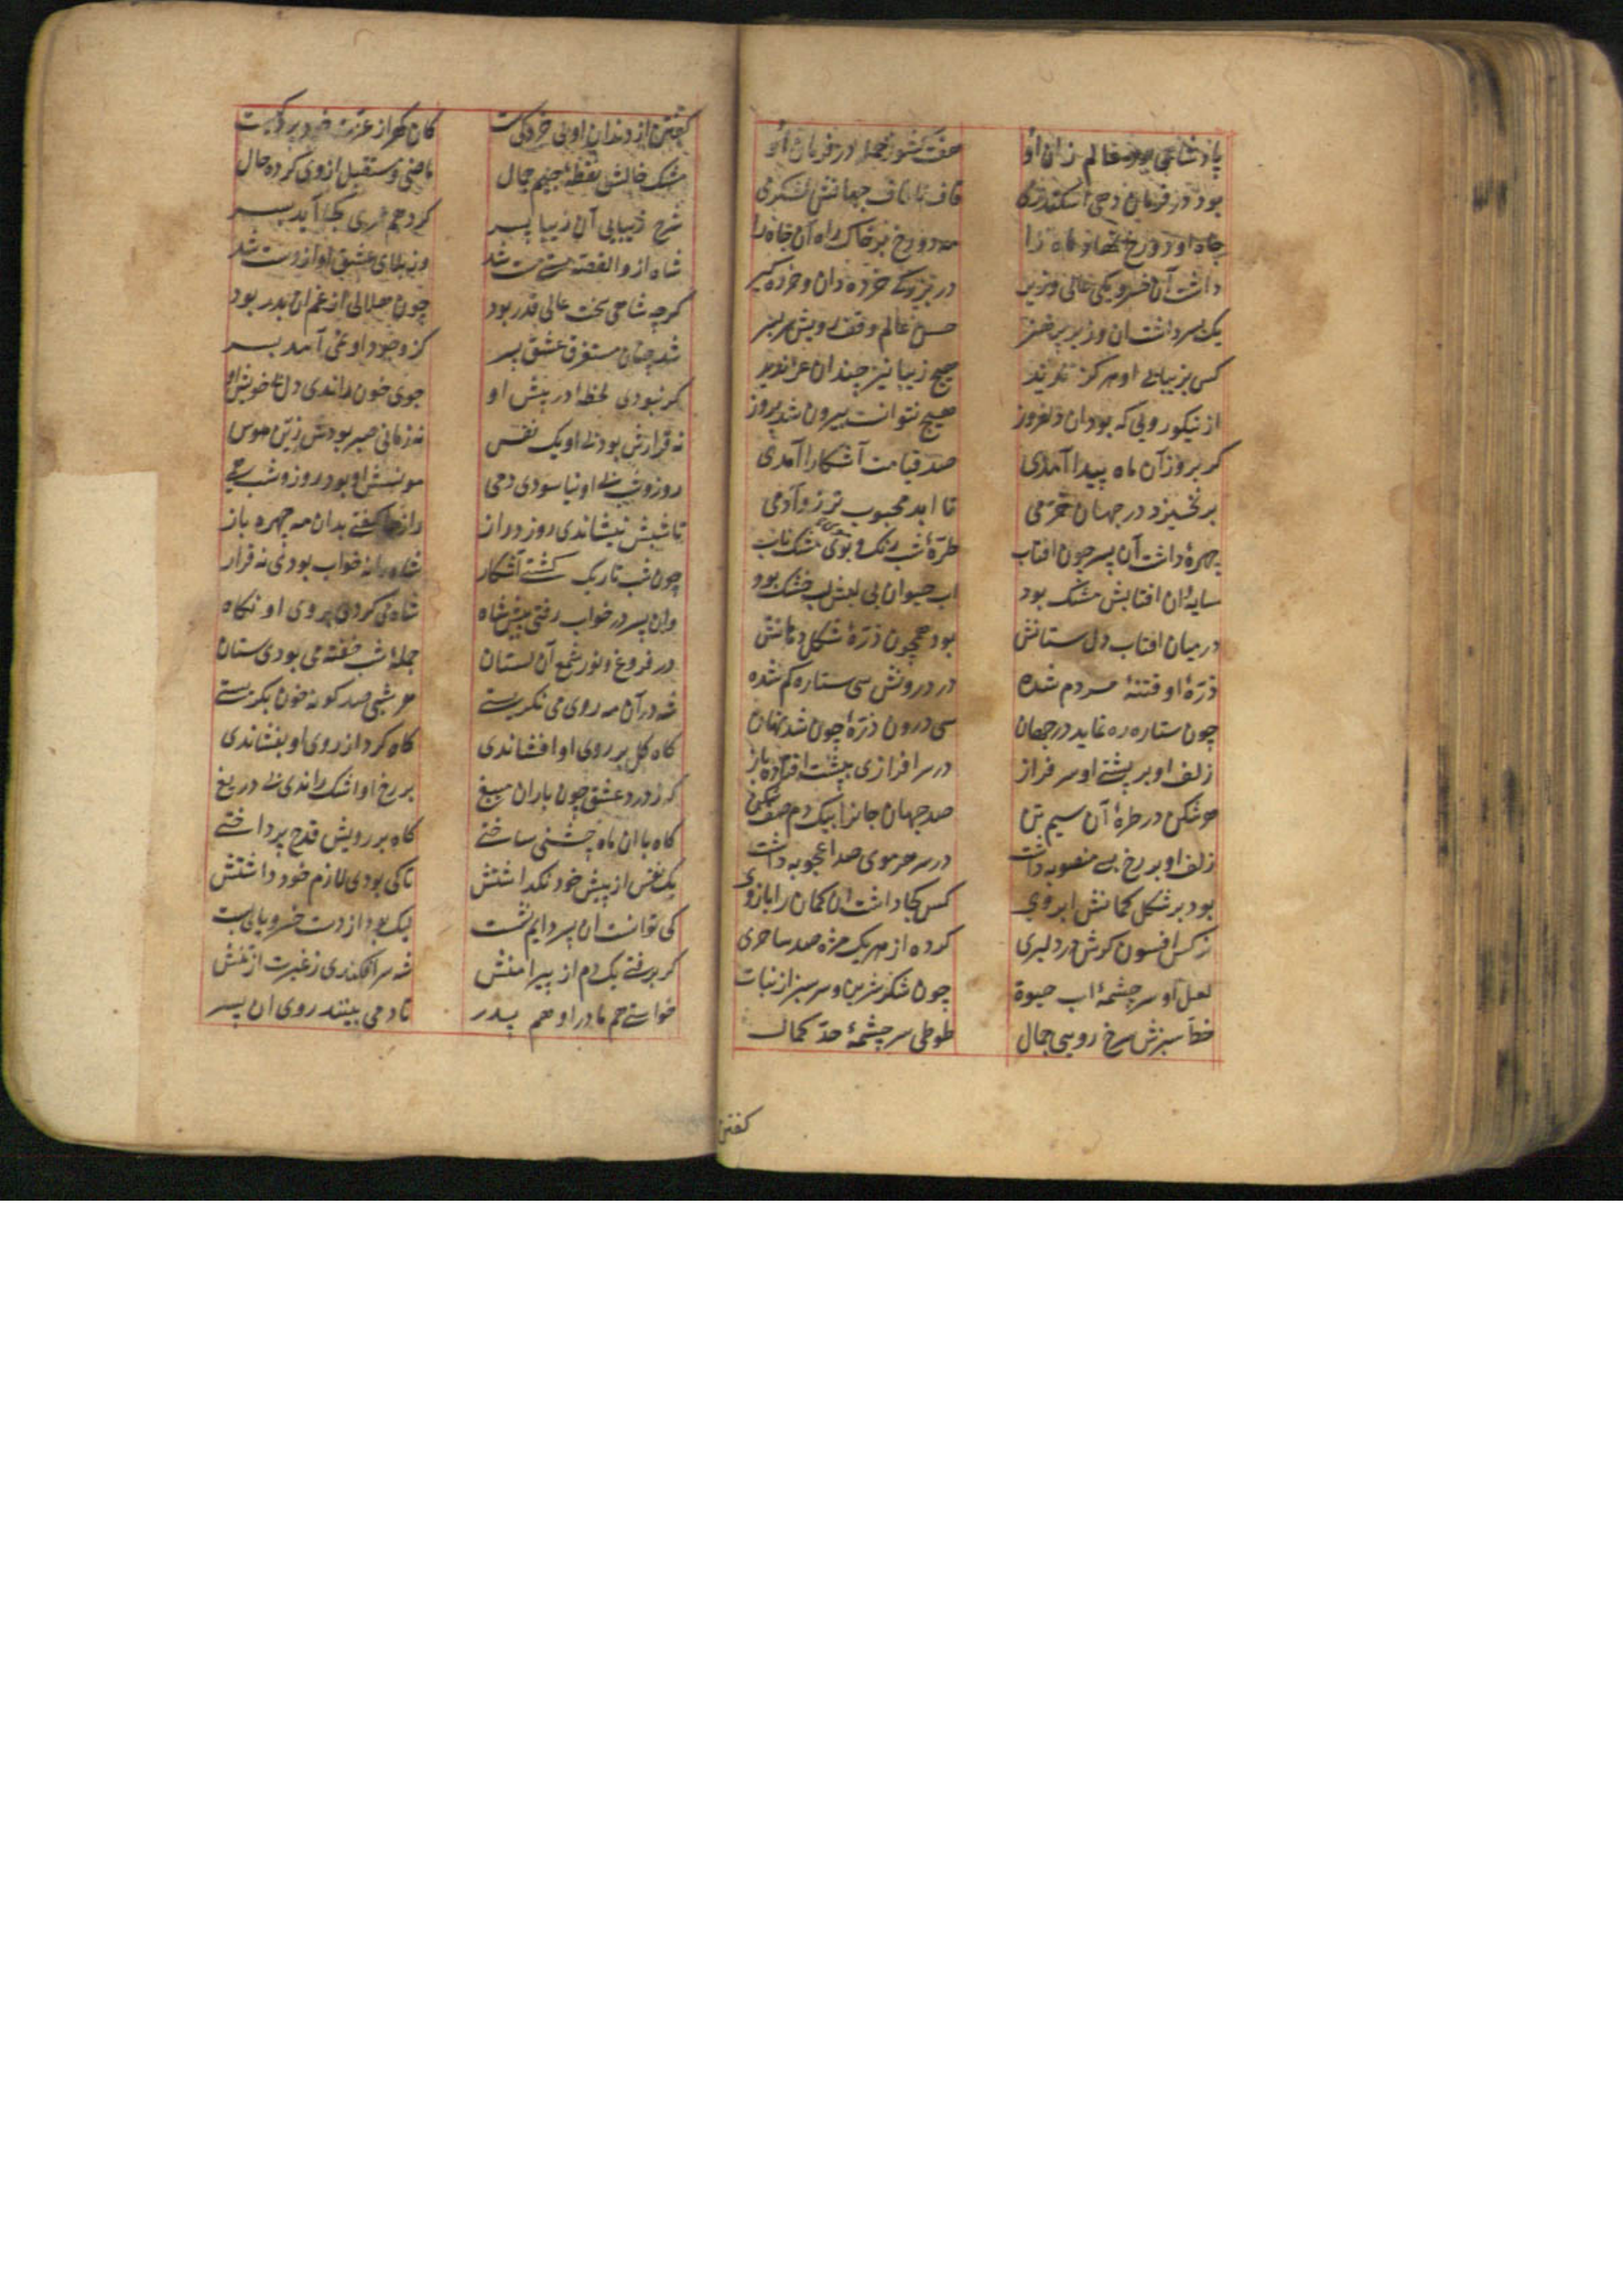 پادشاهی بود عالم زان او هفت کشور جمله در فرمان او
بود در فرمان دهی اسکندری قاف تا قاف جهانش لشکری
جاه او دو رخ نهاده ماه را مه دو رخ بر خاک راه آن جاه را
داشت آن خسرو یکی عالی وزیر در بزرکی خرده دان و خرده کیر
یک پسر داشت آن وزیر پر هنر حسن عالم وقف رویش سر بسر
کس بزیبایی او هرکز ندید هیچ زیبا نیز چندان عز ندید
از نیکو رویی که بود آن دلفروز هیچ نتوانست بیرون شد بروز
کر بروز آن ماه پیدا آمدی صد قیامت آشکارا آمدی
بر نخیزد در جهان خرمی تا ابد محبوب تر زو آدمی
چهرهٔ داشت آن پسر چون افتاب طرهٔ شب رنک و بوی مشک ناب
سایهٔ ان افتابش مشک بود اب حیوان بی لبش لب خشک بود
در میان افتاب دل ستانش بود همچون ذرهٔ شکل دهانش
ذرهٔ او فتنهٔ مردم شده در درونش سی ستاره کم شده
چون ستاره ره نماید در جهان سی درون ذرهٔ چون شد نهان
زلف او بر پشتی او سر فراز در سر افرازی بپشت افتاده باز
هر شکن در طرهٔ آن سیم تن صد جهان جانرا بیک دم صف شکن
زلف او بر رخ بسی منصوبه داشت در سر هر موی صد اعجوبه داشت
بود بر شکل کمانش ابروی کس کجا داشت ان کمان را بازوی
نرکس افسون کرش در دلبری کرده از هر یک مژه صد ساحری
لعل او سر چشمهٔ اب حیوة چون شکر شیرین و سر سبز از نبات
خط سبزش سرخ رویی جمال طوطی سر چشمهٔ حد کمال
کفتن
کفتن از دندان او بی خردکیست کان کهر از عزت خود بر
مشک خالش نقطهٔ جیم جمال ماضی و مستقبل از وی کرده حال
شرح زیبایی آن زیبا پسر کردهم عمری کجا آید بسر
شاه ازو القصه مست مست شد وز بلای عشق او از دست شد
کرچه شاهی سخت عالی قدر بود چون هلالی از غم ان بدر بود
شد چنان مستغرق عشق پسر کز وجود او غمی آمد بسر
کر نبودی لحظهٔ در پیش او جوی خون راندی دل خویش او
نه قرارش بود بی او یک نفس نه زمانی صبر بودش زین هوس
روز و شب بی او نیاسودی دمی مونسش او بود روز و شب همی
تا شبش نبشاندی روز دراز رازها کفتی بدان مه چهره باز
چون شب تاریک کشتی آشکار شاه را نه خواب بودی نه قرار
وان پسر در خواب رفتی پیش شاه شاه می کردی بروی او نکاه
در فروغ و نور شمع آن لستان جملهٔ شب خفته می بودی ستان
شه در آن مه روی می نکریستی هر شبی صد کونه خون بکریستی
کاه کل بر روی او افشاندی کاه کرد از روی او بفشاندی
که ز درد عشق چون باران میغ بر رخ او اشک راندی بی دریغ
کاه با ان ماه جشنی ساختی کاه بر رویش قدح پرداختی
یک نفس از پیش خود نکداشتش تا کی بودی لازم خود داشتش
کی توانست ان پسر دایم نشت لیک بود از دست خسرو پای بست
کر برفتی یک دم از پیرامنش شه سر افکندی ز غیرت از تنش
خواستی هم مادر او هم پدر تا دمی بینند روی ان پسر